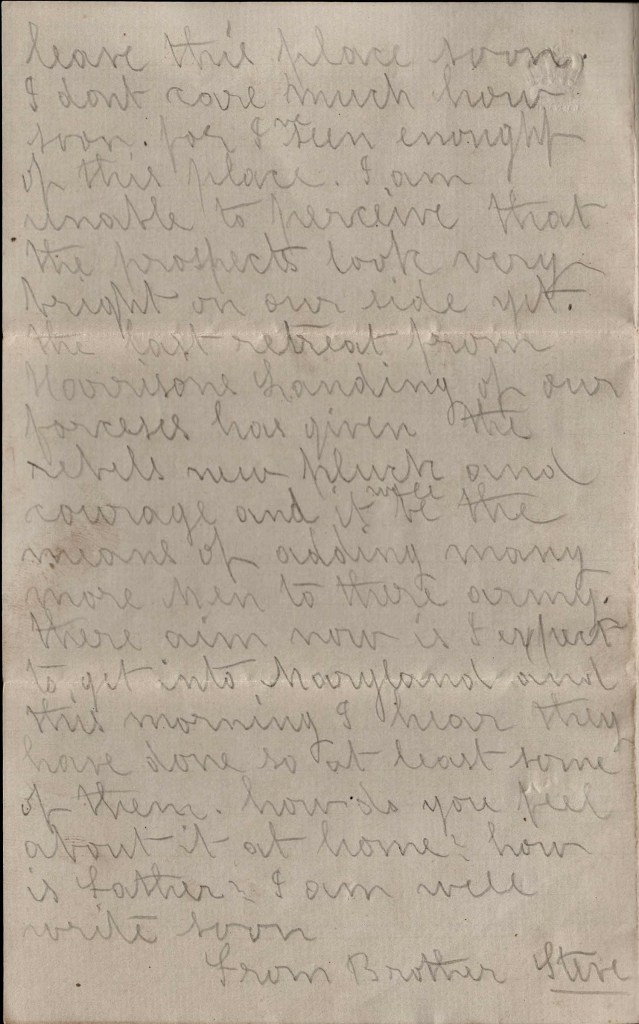 leave this place soon.
I dont care much how
soon. for I ve seen enought
of this place. I am
unable to perceive that
the prospects look very
bright on our side yet.
the last retreat from
Harrisons Landing of our
forceses has given the
rebels new pluck and
courage and it will be the
means of adding many
more men to there army.
there aim now is I expect
to get into Maryland and
this morning I hear they
have done so at least some
of them. how do you feel
about it at home? how
is Father? I am well
write soon
From Brother Steve